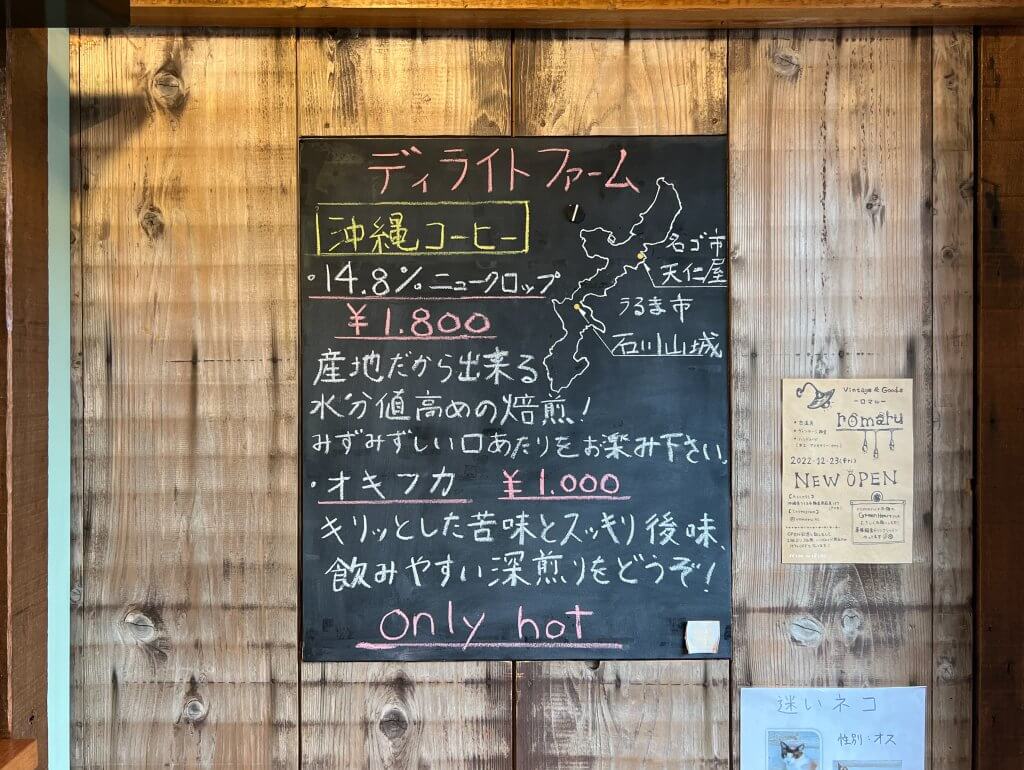 ディライトファーム
沖縄コーヒー
・14.8% ニュークロップ
¥1.800
名ゴ市
天仁屋
うるま市
石川山城
産地だから出来る
水分値高めの焙煎!
みずみずしい口あたりをお楽み下さい。
・オキフカ ¥1.000
キリッとした苦味とスッキリ後味、
飲みやすい深煎りをどうぞ!
only hot
Vintage & Goods
ーロマルー
romaru
2022.12.23(fri)
NEW OPEN
迷いネコ
性別:オス